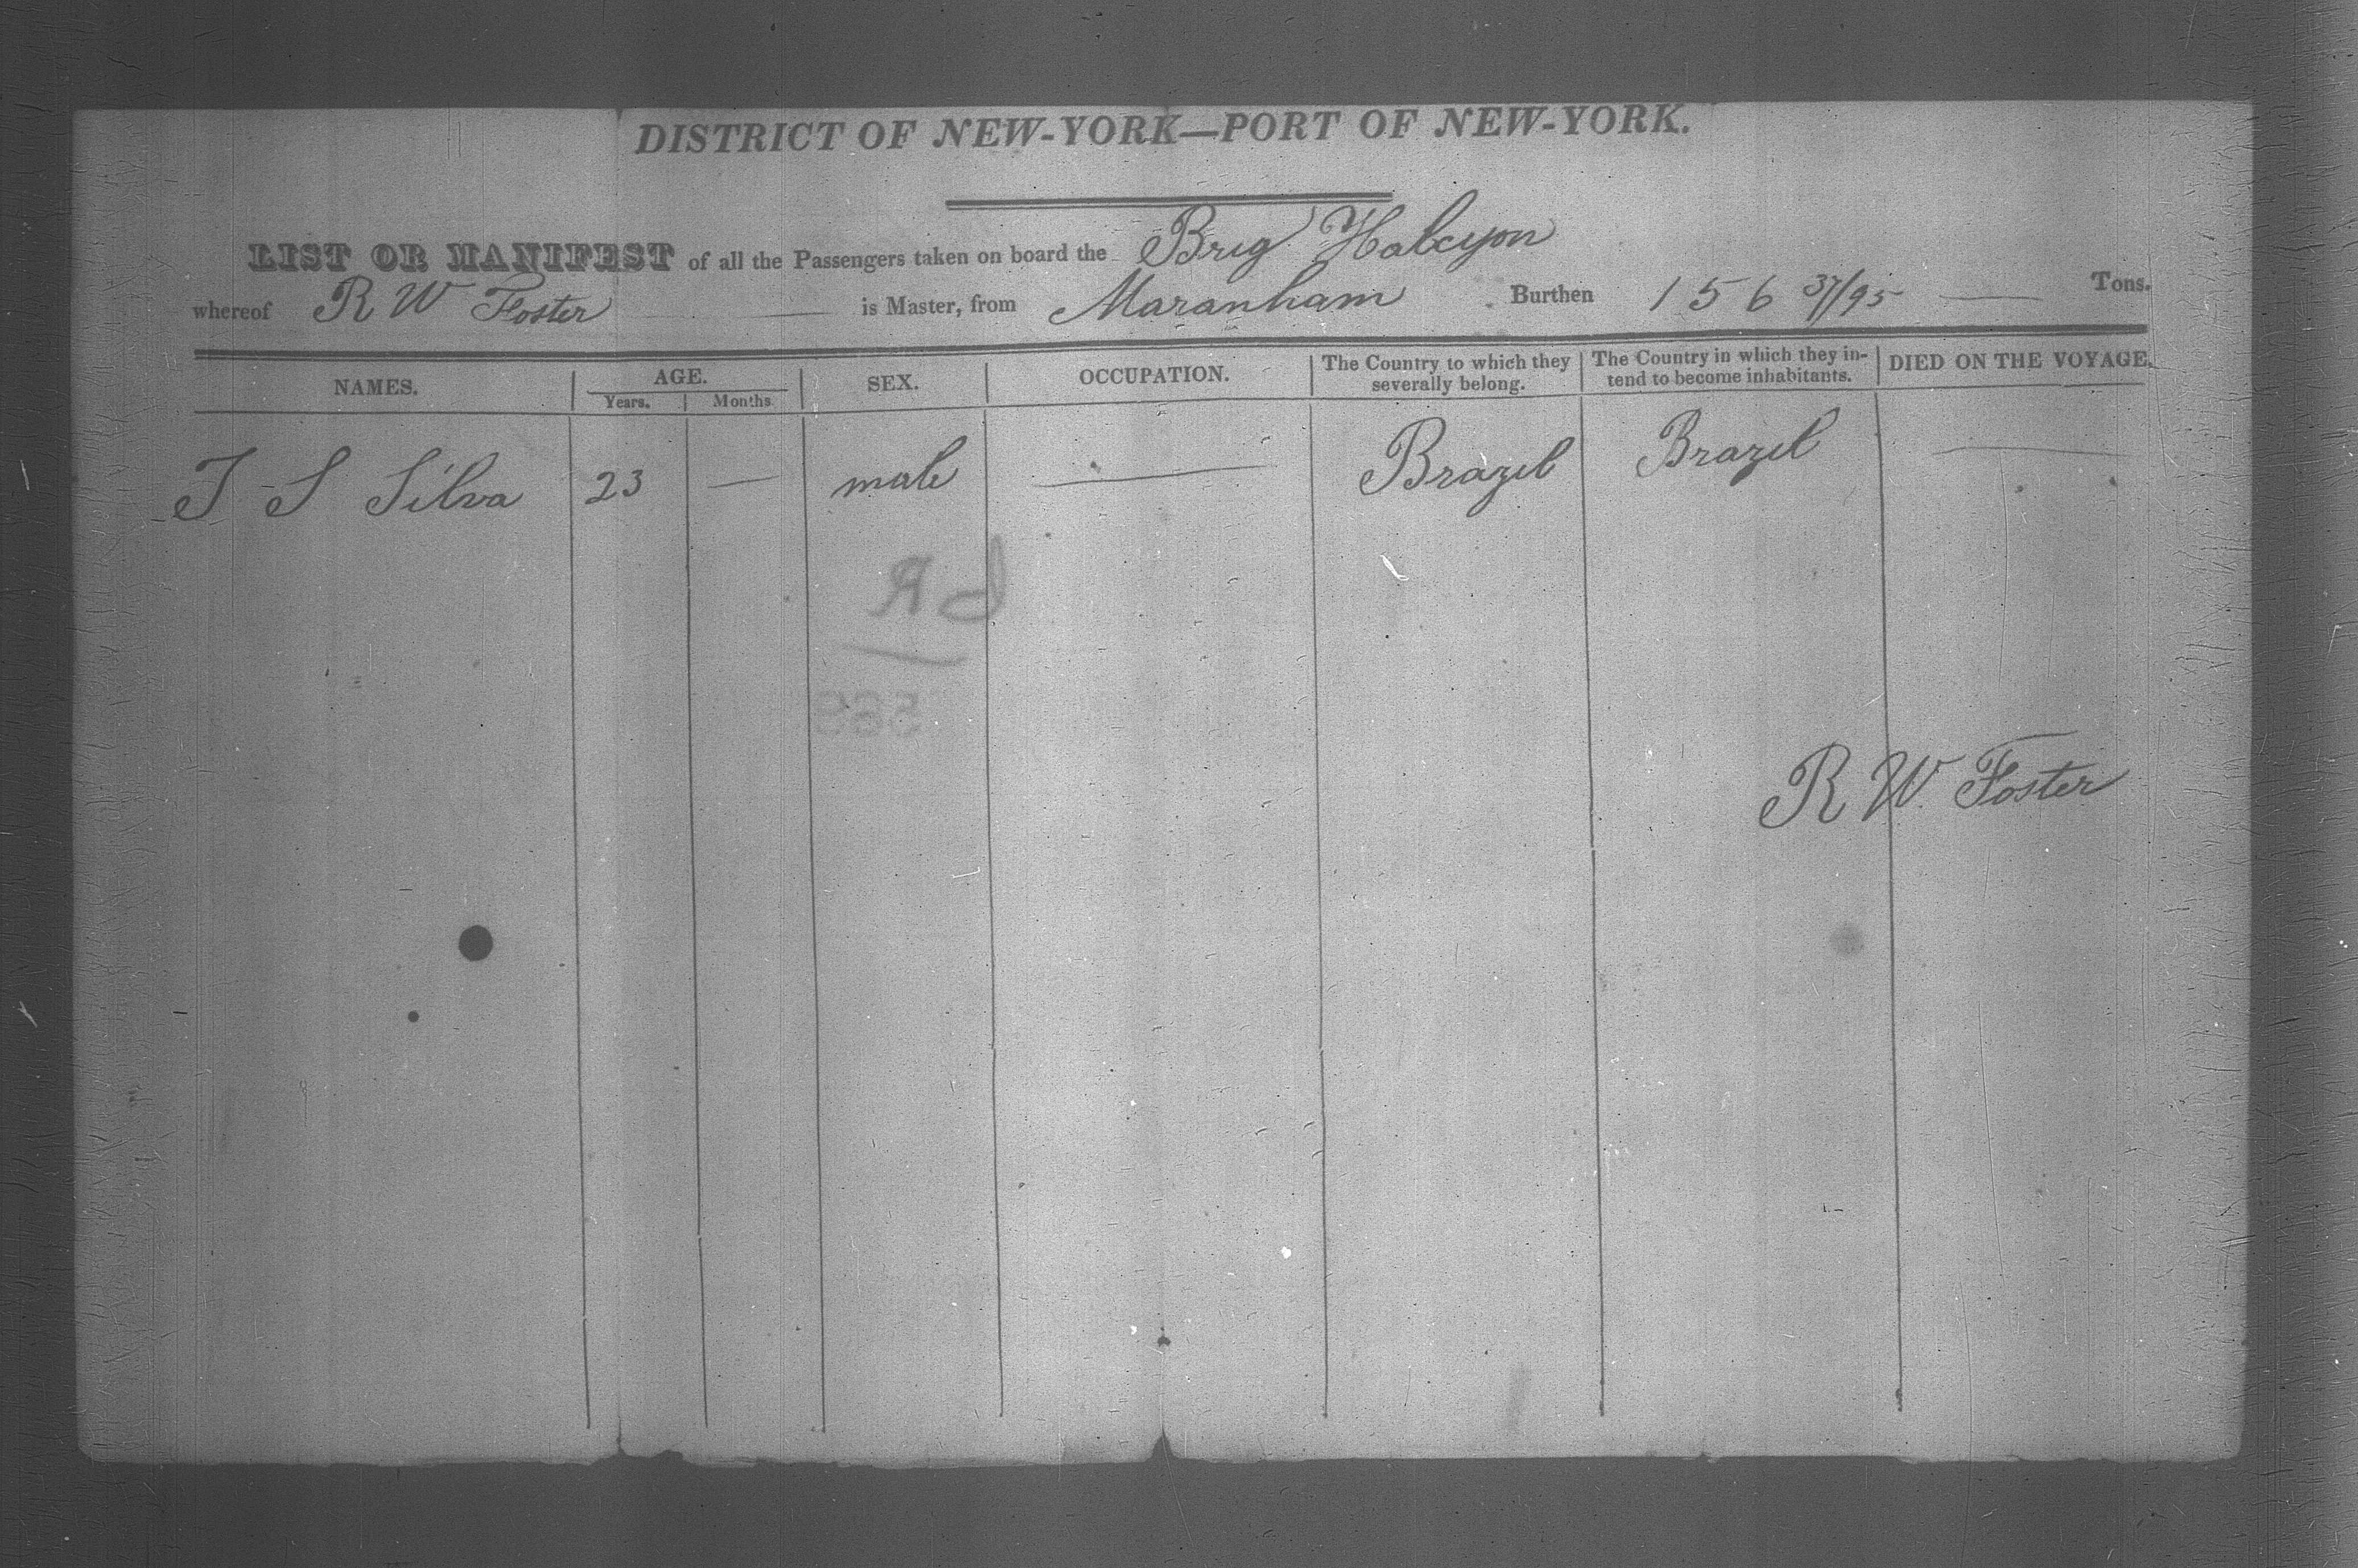 DISTRICT OF NEW-YORK—PORT OF NEW-YORK.
LIST OR MANIFEST of all the Passengers taken on board the Brig Halcyon
whereof R W Foster is Master, from Maranham Burthen 156 37/95 Tons.
NAMES. AGE. Years. Months. SEX. OCCUPATION. The Country to which they severally belong. The Country in which they intend to become inhabitants. DIED ON THE VOYAGE.
J S Silva 23 — male — Brazil Brazil —
R W Foster